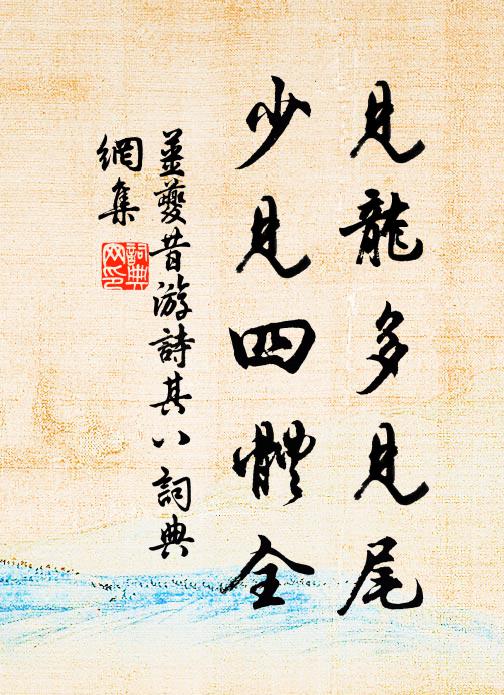 見龍多見尾
少見四體全
姜夔昔游詩其八 詞典
網集
詞典網印